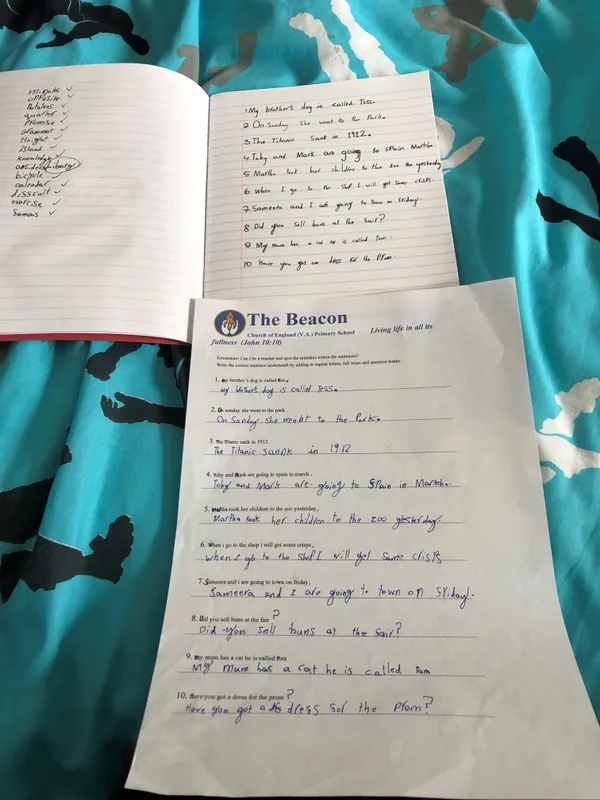 minute ✓
opposite ✓
Potatoes ✓
quarter ✓
Promise ✓
Grammar ✓
Height ✓
Island ✓
Knowledge ✓
Libary
bicycle ✓
calendar ✓
exercise ✓
Samous ✓
1 My brother's dog is called Tess.
2 On Sanday she went to the Park.
3 The Titanic Sank in 1912.
4 Toby and Mark are going to SPain Martch.
5 Martha took her children to the zoo the yesterday
6 When I go to the shop I will get some crisps.
7 Sameera and I are going to town on Sriday.
8 Did you sell buns at the sair?
9 My mum has a cat he is called Tom.
10 Have you got a dress for the Prom.
The Beacon
Church of England (V.A.) Primary School
Living life in all its
fullness (John 10:10)
Grammar: Can I be a teacher and spot the mistakes within the sentences?
Write the correct sentence underneath by adding in capital letters, full stops and question marks.
1. my brother's dog is called Tess.
my brothers dog is called Tess.
2. On sunday she went to the park.
On Sanday she wenbt to the Park.
3. The Titanic sank in 1912.
The Titanic sank in 1912
4. Toby and Mark are going to spain in march.
Toby and Mark are going to SPain in Martch.
5. Martha took her children to the zoo yesterday,
Martha took her children to the zoo yesterday.
6. When i go to the shop i will get some crisps,
when I go to the shoP I will get some crisps
7. Sameera and i are going to town on friday,
Sameera and I are going to town on Sriday.
8. Did you sell buns at the fair ?
Did you sell buns at the sair?
9. My mum has a cat he is called
My mum has a cat he is called Tom
10. Have you got a dress for the prom ?
Have you got a dress Sor the Prom?